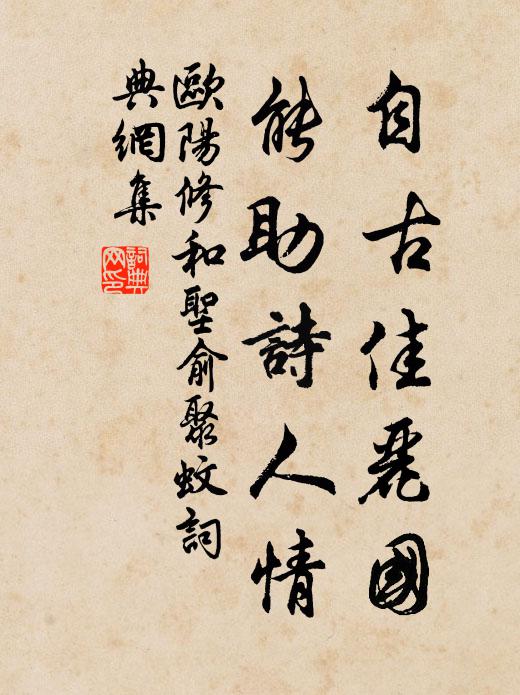 自古佳麗國
能助詩人情
歐陽修和聖俞聚蚊詞
典網集
詞典
网印